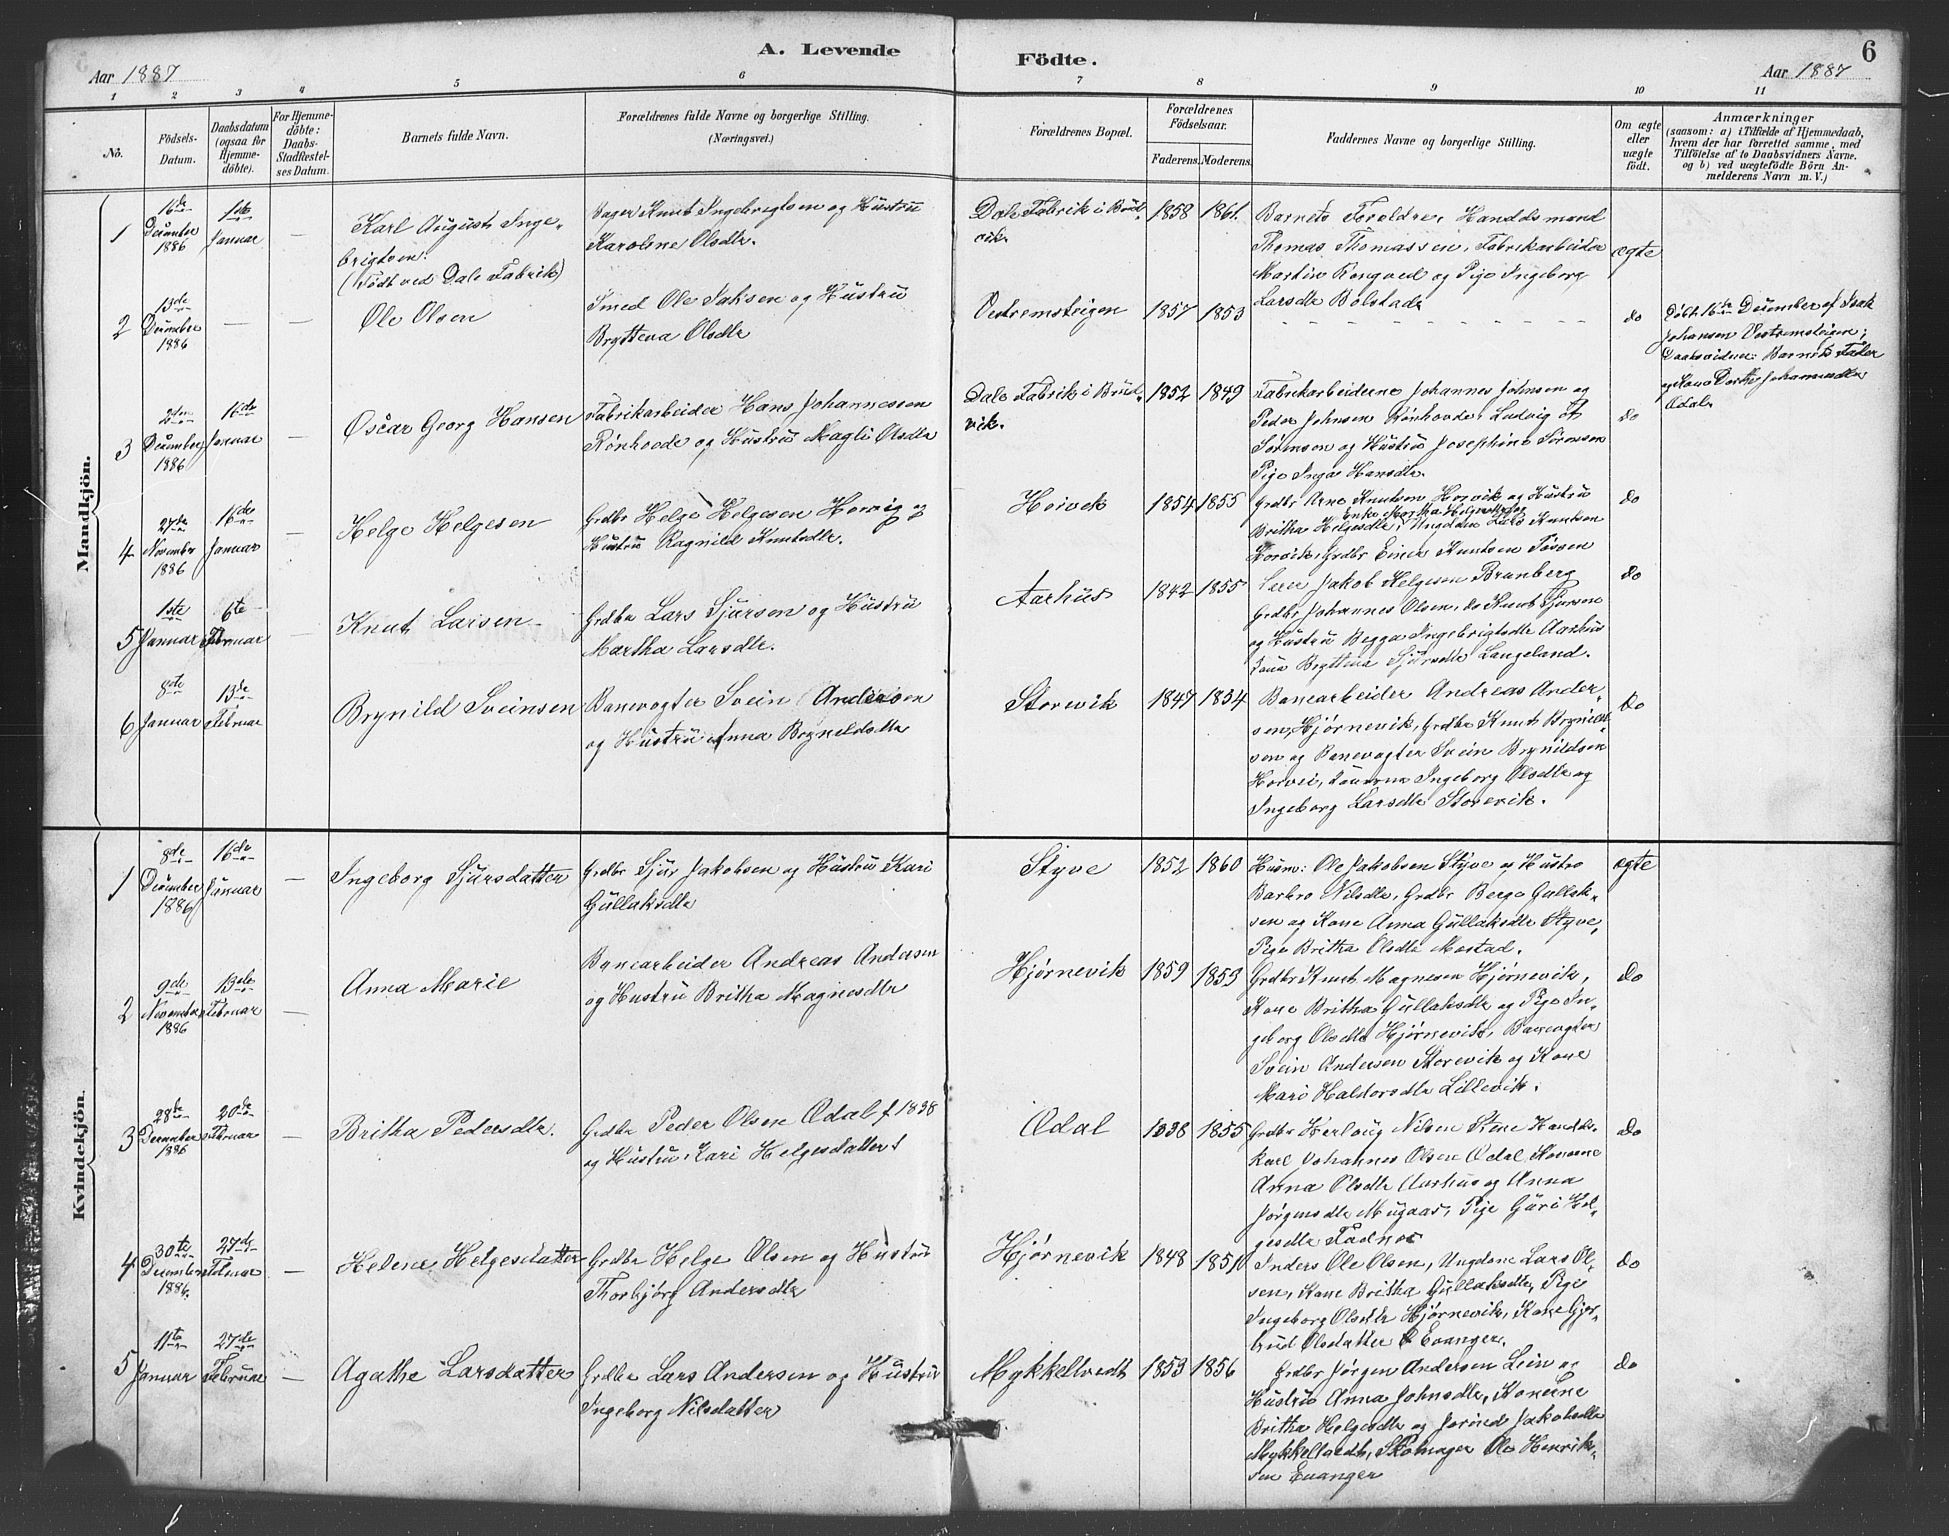 A. Levende
Födte.
6
Aar 1887
Aar 1887
1 2 3 4 5 6 7 8 9 10 11
No.
Födsels-
Datum.
Daabsdatum
(ogsaa for
Hjemme-
döbte).
For Hjemme-
döbte:
Daabs-
Stadfæstel-
ses Datum.
Barnets fulde Navn.
Forældrenes fulde Navne og borgerlige Stilling.
(Næringsvei.)
Forældrenes Bopæl.
Forældrenes
Födselsaar.
Faderens. Moderens.
Faddernes Navne og borgerlige Stilling.
Om ægte
eller
uægte
födt.
Anmærkninger
(saasom: a) i Tilfælde af Hjemmedaab,
hvem der har forrettet samme, med
Tilföielse af to Daabsvidners Navne.
og b) ved uægtefödte Börn An-
melderens Navn m. V.)
Mandkjön.
1
16de
December
1886
1ste
Januar
—
Karl August Inge-
brigtsen.
(Födt ved Dale Fabrik)
Knut Ingebrigtsen og Hustru
Karoline Olsdtr.
Dale Fabrik i Brud-
vik.
1858 1861.
Barnets Foreldre, Handelsmand
Thomas Thomassen, Fabrikarbeider
Martin og Pige Ingeborg
Larsdtr Bolstad.
ægte
2
13de
December
1886
— —
Ole Olsen
Smed Ole Isaksen og Hustru
Bryteva Olsdtr
Vestremsteigen
1857 1853
do
Döbt 16de December af Isak
Johansen Vestremsteigen;
Daabsvidner: Barnets Fader
og Kone Dorthe Johannesdtr
Ødal.
3
2den
December
1886
16de
Januar
—
Oscar Georg Hansen
Fabrikarbeider Hans Johannessen
Rönhovde og Hustru Magli Olsdtr
Dale Fabrik i Brud-
vik.
1852 1849
Fabrikarbeiderne Johannes Johnsen og
Peder Johnsen Rönhovde, Ludvig
Sörensen og Hustru Josephine Sörensen
Pige Inga Hansdtr.
do
4
27de
November
1886
16de
Januar
—
Helge Helgesen
Grdbr Helge Helgesen Horvig og
Hustru Ragnild Knutsdtr.
Horvik
1854 1855
Grdbr Arne Knutsen Horvik og Hustru
Enke Martha Helgesdatter
Britha Helgesdtr, Ungdom Lars Knutsen
Horvik, Grdbr Einar Knutsen Fossen
do
5
1ste
Januar
6te
Februar
—
Knut Larsen
Grdbr Lars Sjursen og Hustru
Martha Larsdtr.
Aarhus
1842 1855
Lærer Jakob Helgesen Brunberg
Grdbr, Johannes Olsen, do Knut Sjursen
og Hustru Begga Ingebrigtsdtr Aarhus
Brytteva Sjursdtr Langeland.
do
6
8de
Januar
13de
Februar
Brynild Sveinsen
Banevogter Svein Andersen
og Hustru Anna Brynildsdtr
Storevik
1847 1854
Banearbeider Andreas Ander-
sen, Hjørnevik, Grdbr Knut Brynild-
sen og Banevogter Svein Brynildsen
Horvei, Konerne Ingeborg Olsdtr og
Ingeborg Larsdtr Storevik.
do
Kvindekjön.
1
8de
December
1886
16de
Januar
—
Ingeborg Sjursdatter
Grdbr Sjur Jakobsen og Hustru Kari
Gullaksdtr
Styve
1852 1860
Husm: Ole Jakobsen Styve og Hustro
Barbro Nilsdtr, Grdbr Berge Gullak-
sen og Kone Anna Gullaksdtr Styve,
Pige Britha Olsdtr Mostad.
ægte
2
9de
November
1886
13de
Februar
—
Anna Marie
Banearbeider Andreas Andersen
og Hustru Britha Magnesdtr
Hjørnevik
1859 1853
Grdbr Knut Magnesen Hjørnevik,
Kone Britha Gullaksdtr og Pige In-
geborg Olsdtr Hjørnevik, Banevogter
Svein Andersen Storevik og Kone
Mari Haldorsdtr Lillevik.
do
3
28de
December
1886
20de
Februar
—
Britha Pedersdtr.
Grdbr Peder Olsen Ødal f 1838
og Hustru Kari Helgesdatter
Ødal
1838 1855
Grdbr Herlaug Nilsen Stene Handels-
karl Johannes Olsen Ødal Konerne
Anna Olsdtr Aarhus og Anna
Jørgensdtr Mugaas, Pige Guri Hel-
gesdtr Fadnes
do
4
30te
December
1886.
27de
Februar
—
Helene Helgesdatter
Grdbr Helge Olsen og Hustru
Thorbjørg Andersdtr
Hjørnevik
1848 1851
Inders Ole Olsen, Ungdom Lars Ol-
sen, Kone Britha Gullaksdtr, Pige
Ingeborg Olsdtr Hjørnevik, Kone Gjer-
trud Olsdatter Evanger.
do
5
11te
Januar
27de
Februar
—
Agathe Larsdatter
Grdbr Lars Andersen og Hustru
Ingeborg Nilsdatter
Mykkeltvedt
1853 1856
Grdbr Jørgen Andersen Lein og
Hustru Anna Johnsdtr, Konerne
Britha Helgesdtr og Jorind Jakobsdtr
Mykkeltvedt, Skomager Ole Henrik-
sen Evanger
do